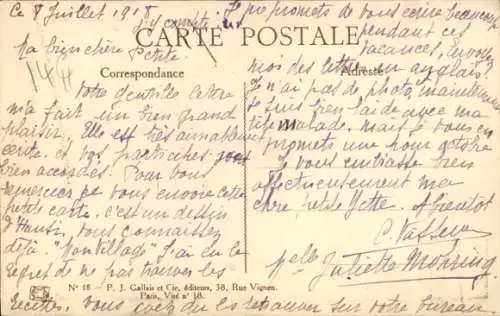 Ce 8 Juillet 191
Ma bien chère Petite
CARTE POSTALE
Correspondance
Adresse
144
Votre gentille lettre
m'a fait un bien grand
plaisir, Elle est très aimablement
écrite, et vos participes
bien accordés. Pour vous
remercier je vous envoie cette
petite carte. c'est un dessin
d'Hansi, vous connaissez
déjà. "Mon Village" J'ai eu le
regret de ne pas trouver les
vous sur votre bureau
Je promets de vous écrire beaucoup
pendant ces
vacances, envoyez
moi des lettres en anglais.
Je n'ai pas de photo, maintenant
je suis bien laide avec ma
tête malade. mais je vous en
promets une pour octobre
Je vous embrasse bien
affectueusement ma
chère petite Yette. A bientôt
Melle
Juliette
N° 18 - P. J. Gallais et Cie, éditeurs, 38, Rue Vignon.
Paris, Visé n° 18.